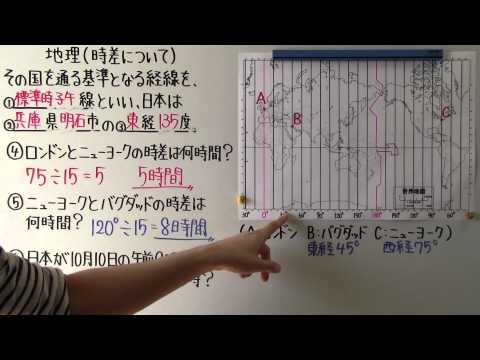 地理(時差について)
その国を通る基準となる経線を、
①標準時子午線といい、日本は
②兵庫県明石市の③東経135度。
④ロンドンとニューヨークの時差は何時間?
75÷15=5 5時間
⑤ニューヨークとバグダッドの時差は
何時間? 120°÷15=8時間
日本が10月10日の午前
時?
A
B
C
世界地図
30° 0°
180°
90° 60°
(A ンドン B:バグダッド C:ニューヨーク)
東経45° 西経75°